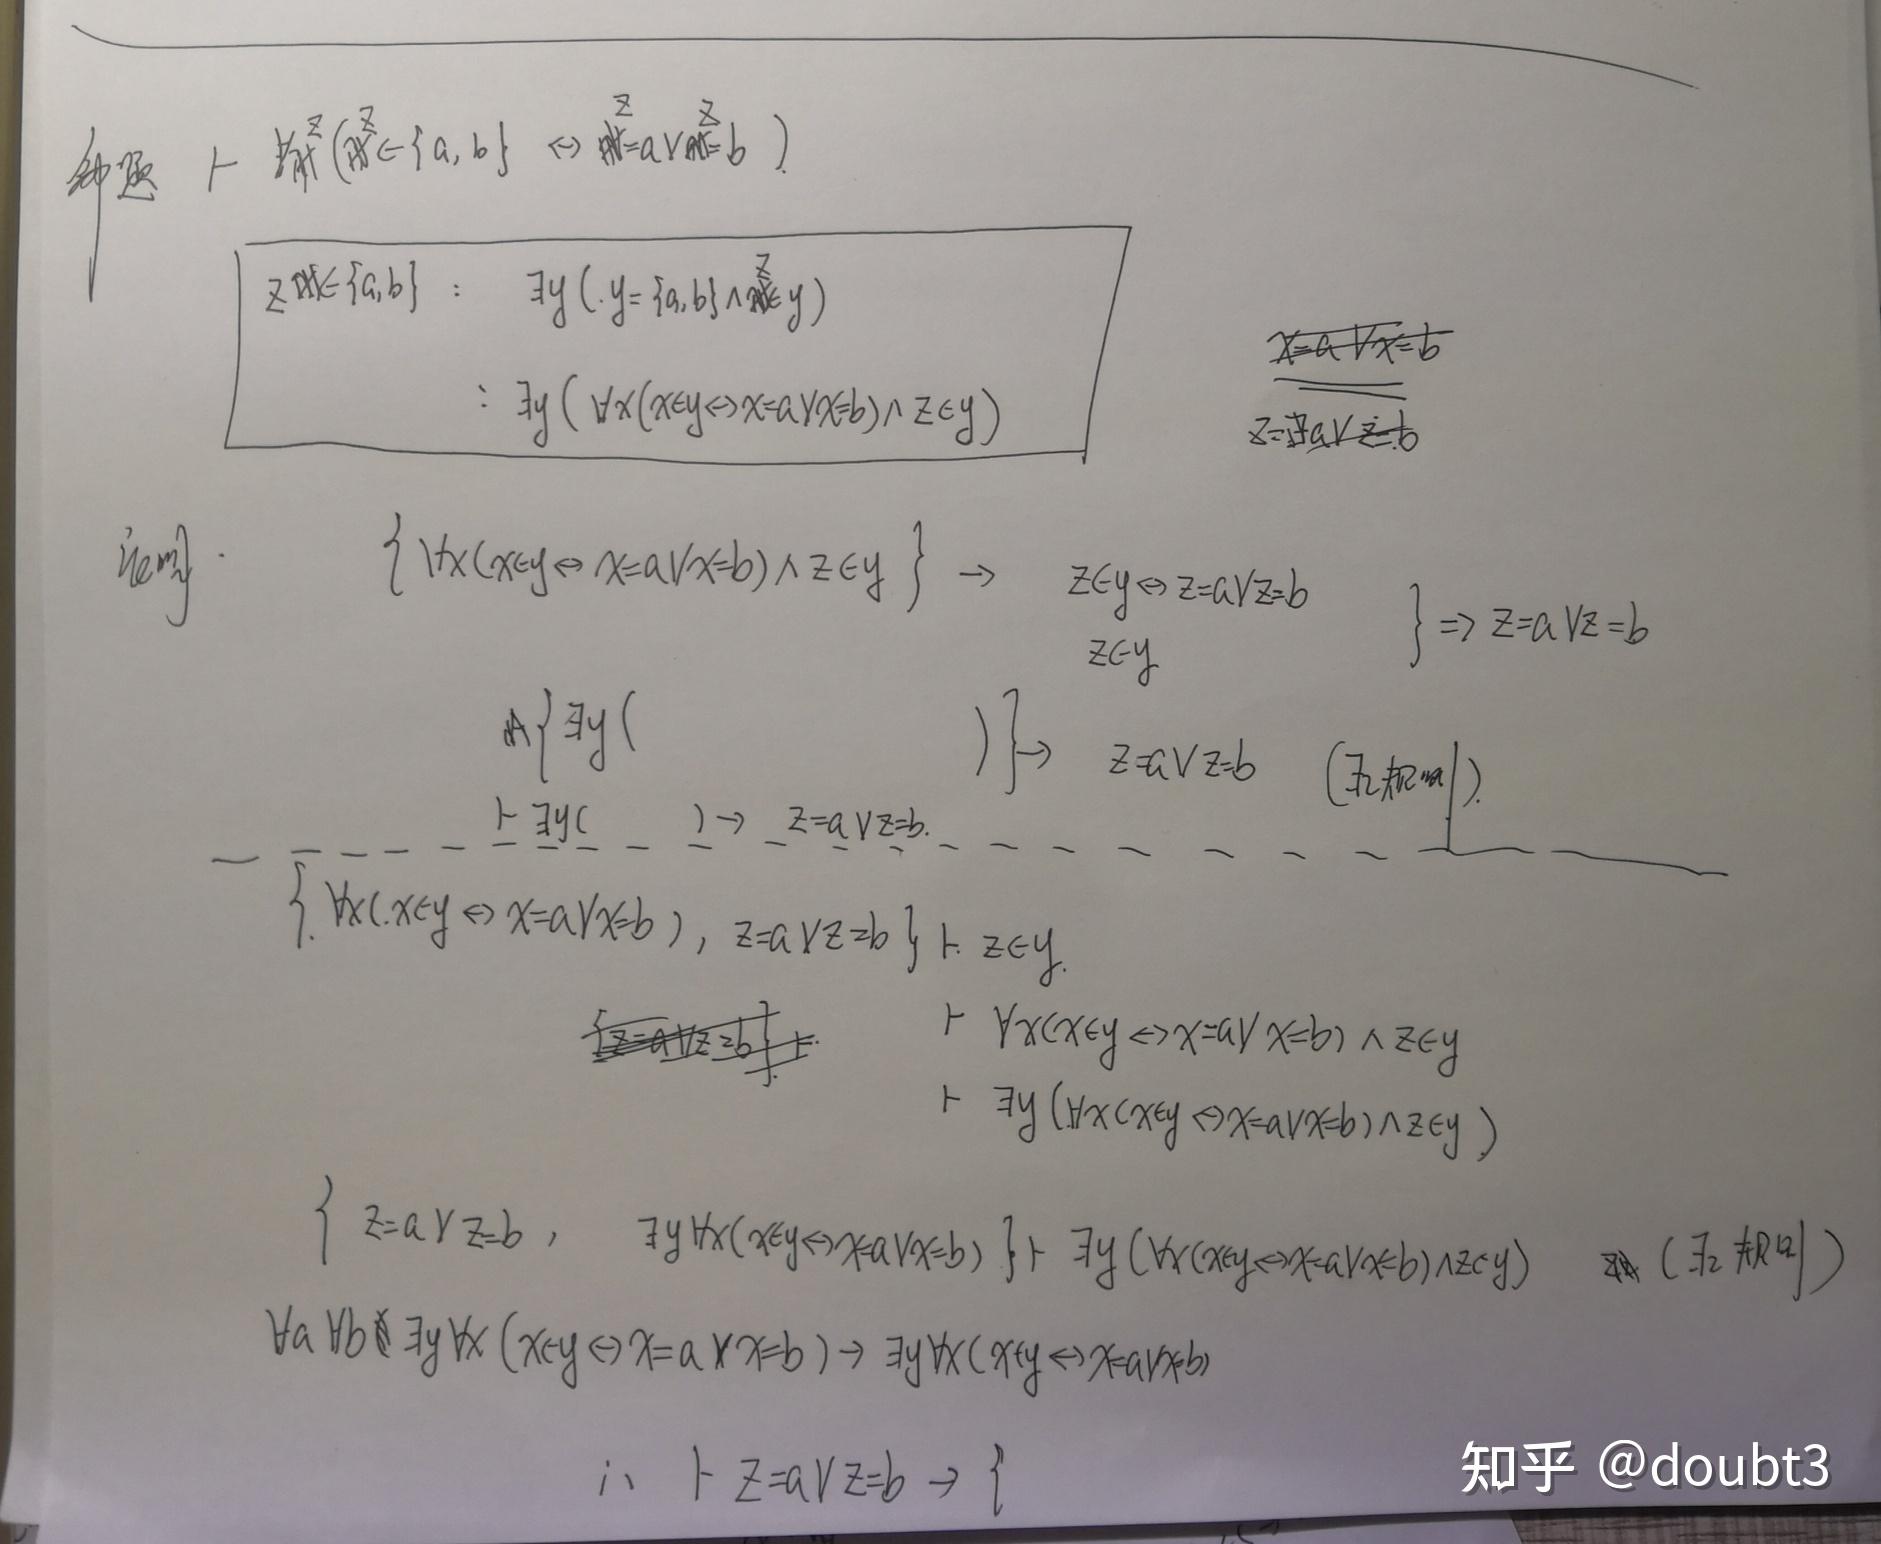 命题 ⊢ ∀z(z∈{a,b} ⇔ z=a∨z=b).
z∈{a,b} : ∃y(y={a,b}∧z∈y)
: ∃y(∀x(x∈y⇔x=a∨x=b)∧z∈y)
x=a∨x=b
z=a∨z=b
证明. {∀x(x∈y⇔x=a∨x=b)∧z∈y} → z∈y⇔z=a∨z=b
z∈y } ⇒ z=a∨z=b
{∃y( )} → z=a∨z=b (∃₂规则).
⊢ ∃y( ) → z=a∨z=b.
{∀x(x∈y⇔x=a∨x=b), z=a∨z=b} ⊢ z∈y.
{z=a∨z=b} ⊢
⊢ ∀x(x∈y⇔x=a∨x=b)∧z∈y
⊢ ∃y(∀x(x∈y⇔x=a∨x=b)∧z∈y)
{z=a∨z=b, ∃y∀x(x∈y⇔x=a∨x=b)} ⊢ ∃y(∀x(x∈y⇔x=a∨x=b)∧z∈y) (∃₂规则)
∀a∀b∃y∀x(x∈y⇔x=a∨x=b) → ∃y∀x(x∈y⇔x=a∨x=b)
∴ ⊢ z=a∨z=b → {
知乎 @doubt3